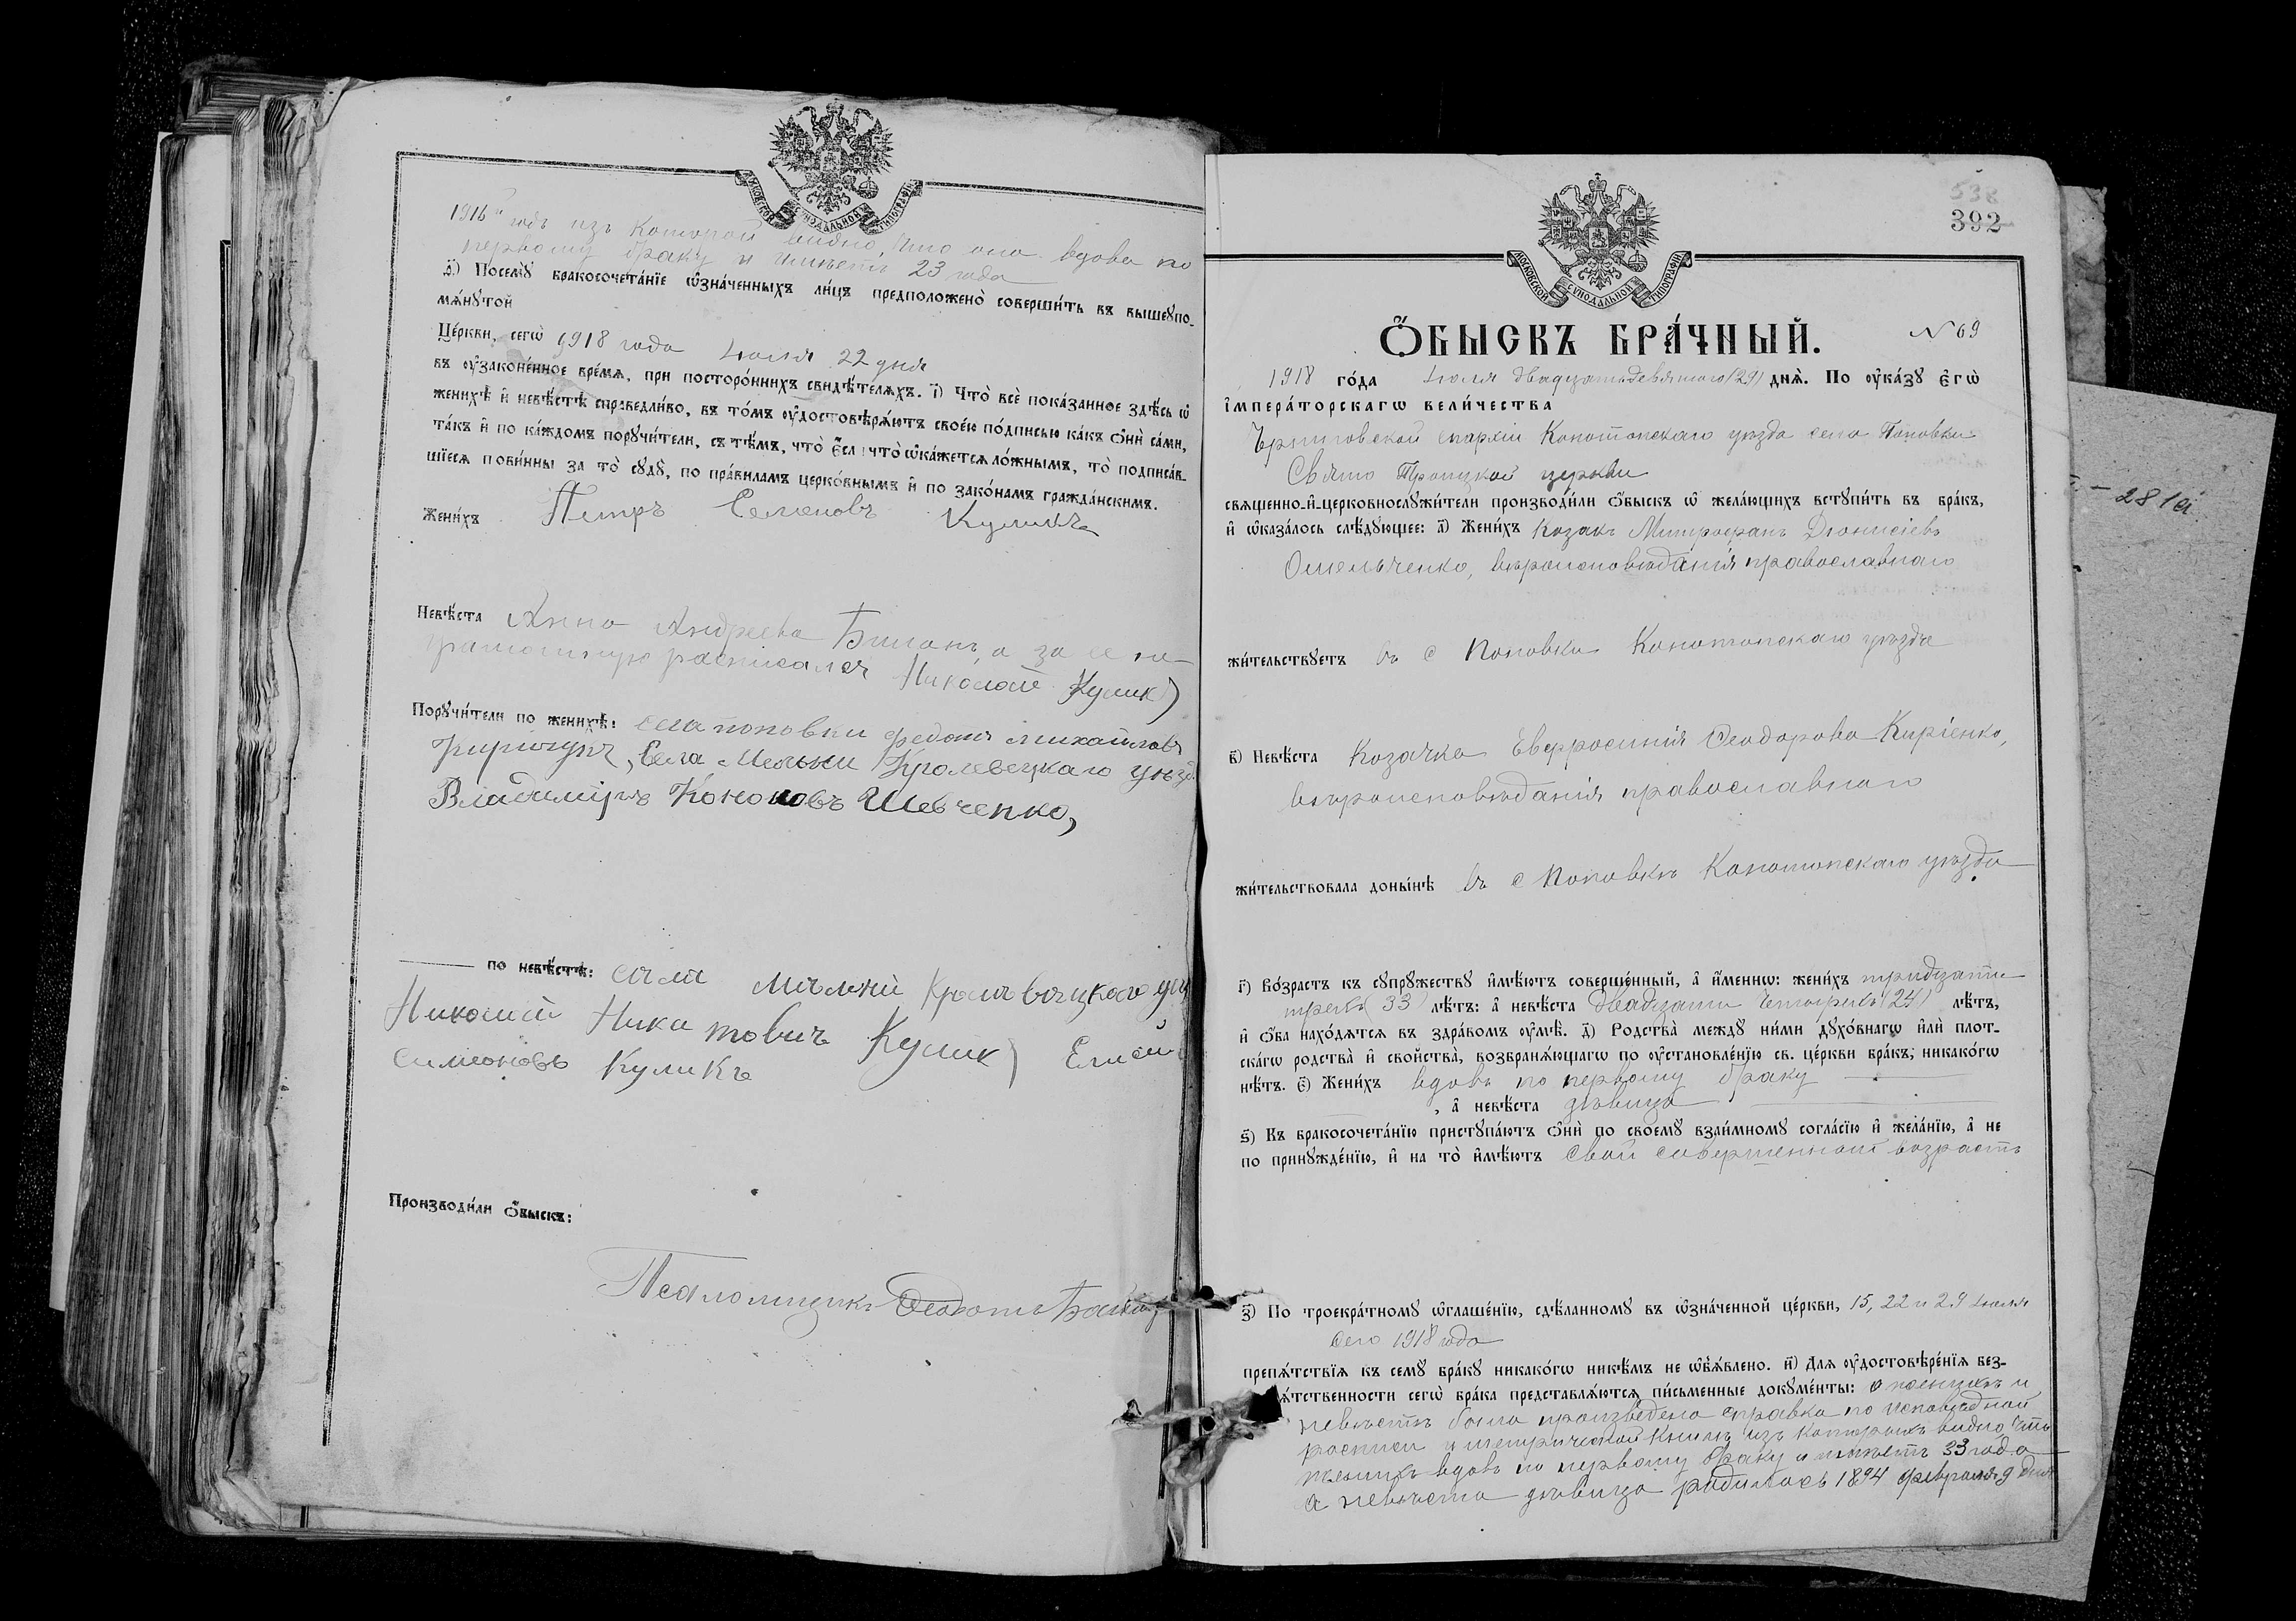 МОСКОВСКОЙ СѴНОДАЛЬНОЙ ТИПОГРАФІИ
1916 годъ изъ которой видно, что она вдова по
первому браку и имѣетъ 23 года
Посемꙋ̀ бракосочета́нїе ѡ҆зна́ченныхъ ли́цъ предположено̀ соверши́ть въ вышеꙋпо-
мѧ́нꙋтой
Це́ркви, сегѡ̀ 1918 года Іюля 22 дня
въ ᲂу҆зако́ненное вре́мѧ, при посторо́ннихъ свидѣ́телѧхъ. і҃) Что̀ всѐ пока́занное здѣ́сь ѡ҆
женихѣ̀ и҆ невѣ́стѣ справедли́во, въ то́мъ ᲂу҆достовѣрѧ́ютъ свое́ю по́дписью ка́къ ѻ҆нѝ са́ми,
та́къ и҆ по ка́ждомъ порꙋчи́тели, съ тѣ́мъ, что̀ є҆́сли что̀ ѡ҆ка́жетсѧ ло́жнымъ, то̀ подписа́в-
шїесѧ пови́нны за то̀ сꙋдꙋ̀, по пра́виламъ церко́внымъ и҆ по зако́намъ гражда́нскимъ.
Жени́хъ Петръ Семеновъ Куликъ
Невѣ́ста Анна Андреева а за ее не
грамотную расписался Николай Кулик
Порꙋчи́тели по женихѣ̀: села поповки Федотъ Михайловъ
Села Мельни Кролевецкаго уѣзд
Владиміръ Кононовъ Шевченко,
по невѣ́стѣ: села Мельни Кролевецкого
Николай Никитовичъ Кулик
Симеоновъ Куликъ
Производи́ли ѻ҆́быскъ:
Псаломщикъ Федотъ
538
392
МОСКОВСКОЙ СѴНОДАЛЬНОЙ ТИПОГРАФІИ
Ѻ҆́БЫСКЪ БРА́ЧНЫЙ. N 69
1918 го́да Іюля двадцать девятого (29) днѧ̀. По ᲂу҆ка́зꙋ є҆гѡ̀
і҆мпера́торскагѡ вели́чества
Черниговской епархіи Конотопскаго уѣзда села Поповки
Свято Троицкой церкви
сщ҃е́нно-и҆-церковнослꙋжи́тели производи́ли ѻ҆́быскъ ѡ҆ жела́ющихъ встꙋпи́ть въ бра́къ,
и҆ ѡ҆каза́лось слѣ́дꙋющее: а҃) Жени́хъ Козакъ Митрофанъ Діонисіевъ
Омельченко, вѣроисповѣданія православнаго
жи́тельствꙋетъ въ с Поповки Конотопскаго уѣзда
в҃) Невѣ́ста Козачка Евфросинія Феодорова Киріенко,
вѣроисповѣданія православнаго
жи́тельствовала доны́нѣ въ с Поповкѣ Конотопскаго уѣзда
г҃) Во́зрастъ къ сꙋпрꙋ́жествꙋ и҆мѣ́ютъ соверше́нный, а҆ и҆́меннѡ: жени́хъ тридцати
трехъ (33) лѣ́тъ: а҆ невѣ́ста двадцати четырехъ (24) лѣ́тъ,
и҆ ѻ҆́ба нахо́дѧтсѧ въ здра́вомъ ᲂу҆мѣ̀. д҃) Родства̀ междꙋ ни́ми дꙋхо́внагѡ и҆лѝ плот-
ска́гѡ родства̀ и҆ свойства̀, возбранѧ́ющагѡ по ᲂу҆становле́нїю св. це́ркви бра́къ, никако́гѡ
нѣ́тъ. є҃) Жени́хъ вдовъ по первому браку
, а҆ невѣ́ста дѣвица
ѕ҃) Къ бракосочета́нїю пристꙋпа́ютъ ѻ҆нѝ по своемꙋ̀ взаи́мномꙋ согла́сїю и҆ жела́нїю, а҆ не
по принꙋжде́нїю, и҆ на то̀ и҆мѣ́ютъ свой совершенный возрастъ
з҃) По троекра́тномꙋ ѡ҆глаше́нїю, сдѣ́ланномꙋ въ ѡ҆зна́ченной це́ркви, 15, 22 и 29 Іюля
сего 1918 года
препѧ́тствїѧ къ семꙋ̀ бра́кꙋ никако́гѡ никѣ́мъ не ѡ҆бъѧ́влено. и҃) Для ᲂу҆достовѣре́нїѧ без-
ѧ́тственности сегѡ̀ бра́ка представлѧ́ютсѧ пи́сьменные докꙋме́нты: о женихѣ и
невѣстѣ была произведена справка по исповѣдной
росписи и метрической книгѣ изъ которыхъ видно что
женихъ вдовъ по первому браку и имѣетъ 33 года
а невѣста дѣвица родилась 1894 февраля 9 дня